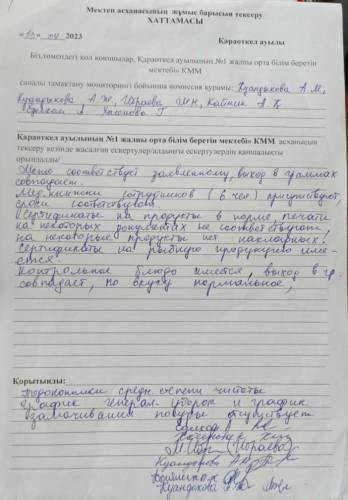 Мектеп асханасының жұмыс барысын тексеру
ХАТТАМАСЫ
2023
Қараөткел ауылы
Біз,төмендегі қол қоюшылар, Қараөткел ауылының №1 жалпы орта білім беретін
мектебі» КММ
сапалы тамақтану мониторингі бойынша комиссия құрамы: Куандыкова А.М,
Куандыкова А.Ж, Ибраева М.Н, Кабник А.
Хасенова Г
Қараөткел ауылының №1 жалпы орта білім беретін мектебі» КММ асханасын
тексеру кезінде жасалған ескертулер/алдыңғы ескертулердің қаншалықты
орындалды/
Меню соответствует заявленному, выход в граммах
совпадает.
Мед книжки сотрудников (6 чел) присутствуют,
сроки соответствуют.
Сертификаты на продукты в норме, печати
на некоторых документах не соответствуют,
на некоторые продукты нет накладных.
Сертификаты на рыбную продукцию име-
ется.
Контрольное блюдо имеется, выход в гр.
совпадает, по вкусу нормальное,
Қорытынды:
Подоконники средн степени чистоты
График генерал. уборок и график
замачивания посуды отсутствует
М. (Ибраева)
Куандыкова